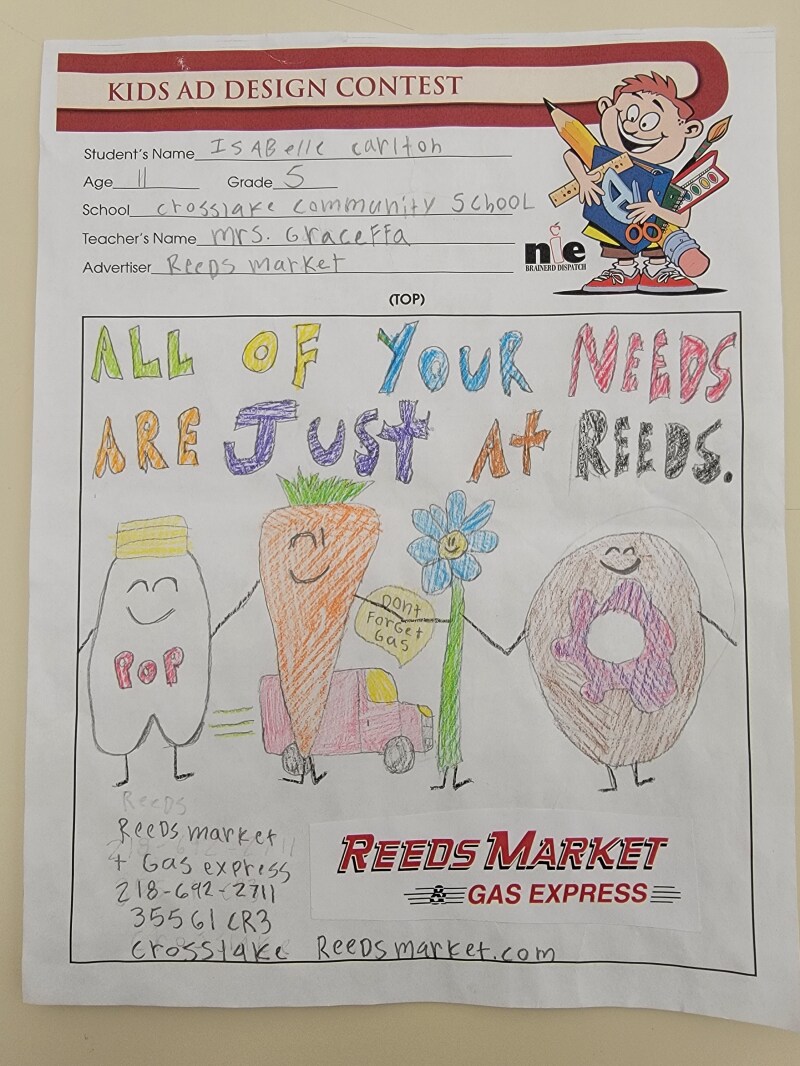 KIDS AD DESIGN CONTEST
Student's Name ISABelle carlton
Age 11 Grade 5
School crosslake community SCHOOL
Teacher's Name mrs. Graceffa
Advertiser Reeds market
nie
BRAINERD DISPATCH
(TOP)
ALL OF YOUR NEEDS
ARE JUST At REEDS.
DONt
ForGet
Gas
POP
Reeds
Reeds market
+ Gas express
218-692-2711
35561 CR3
crosslake Reedsmarket.com
REEDS MARKET
& GAS EXPRESS